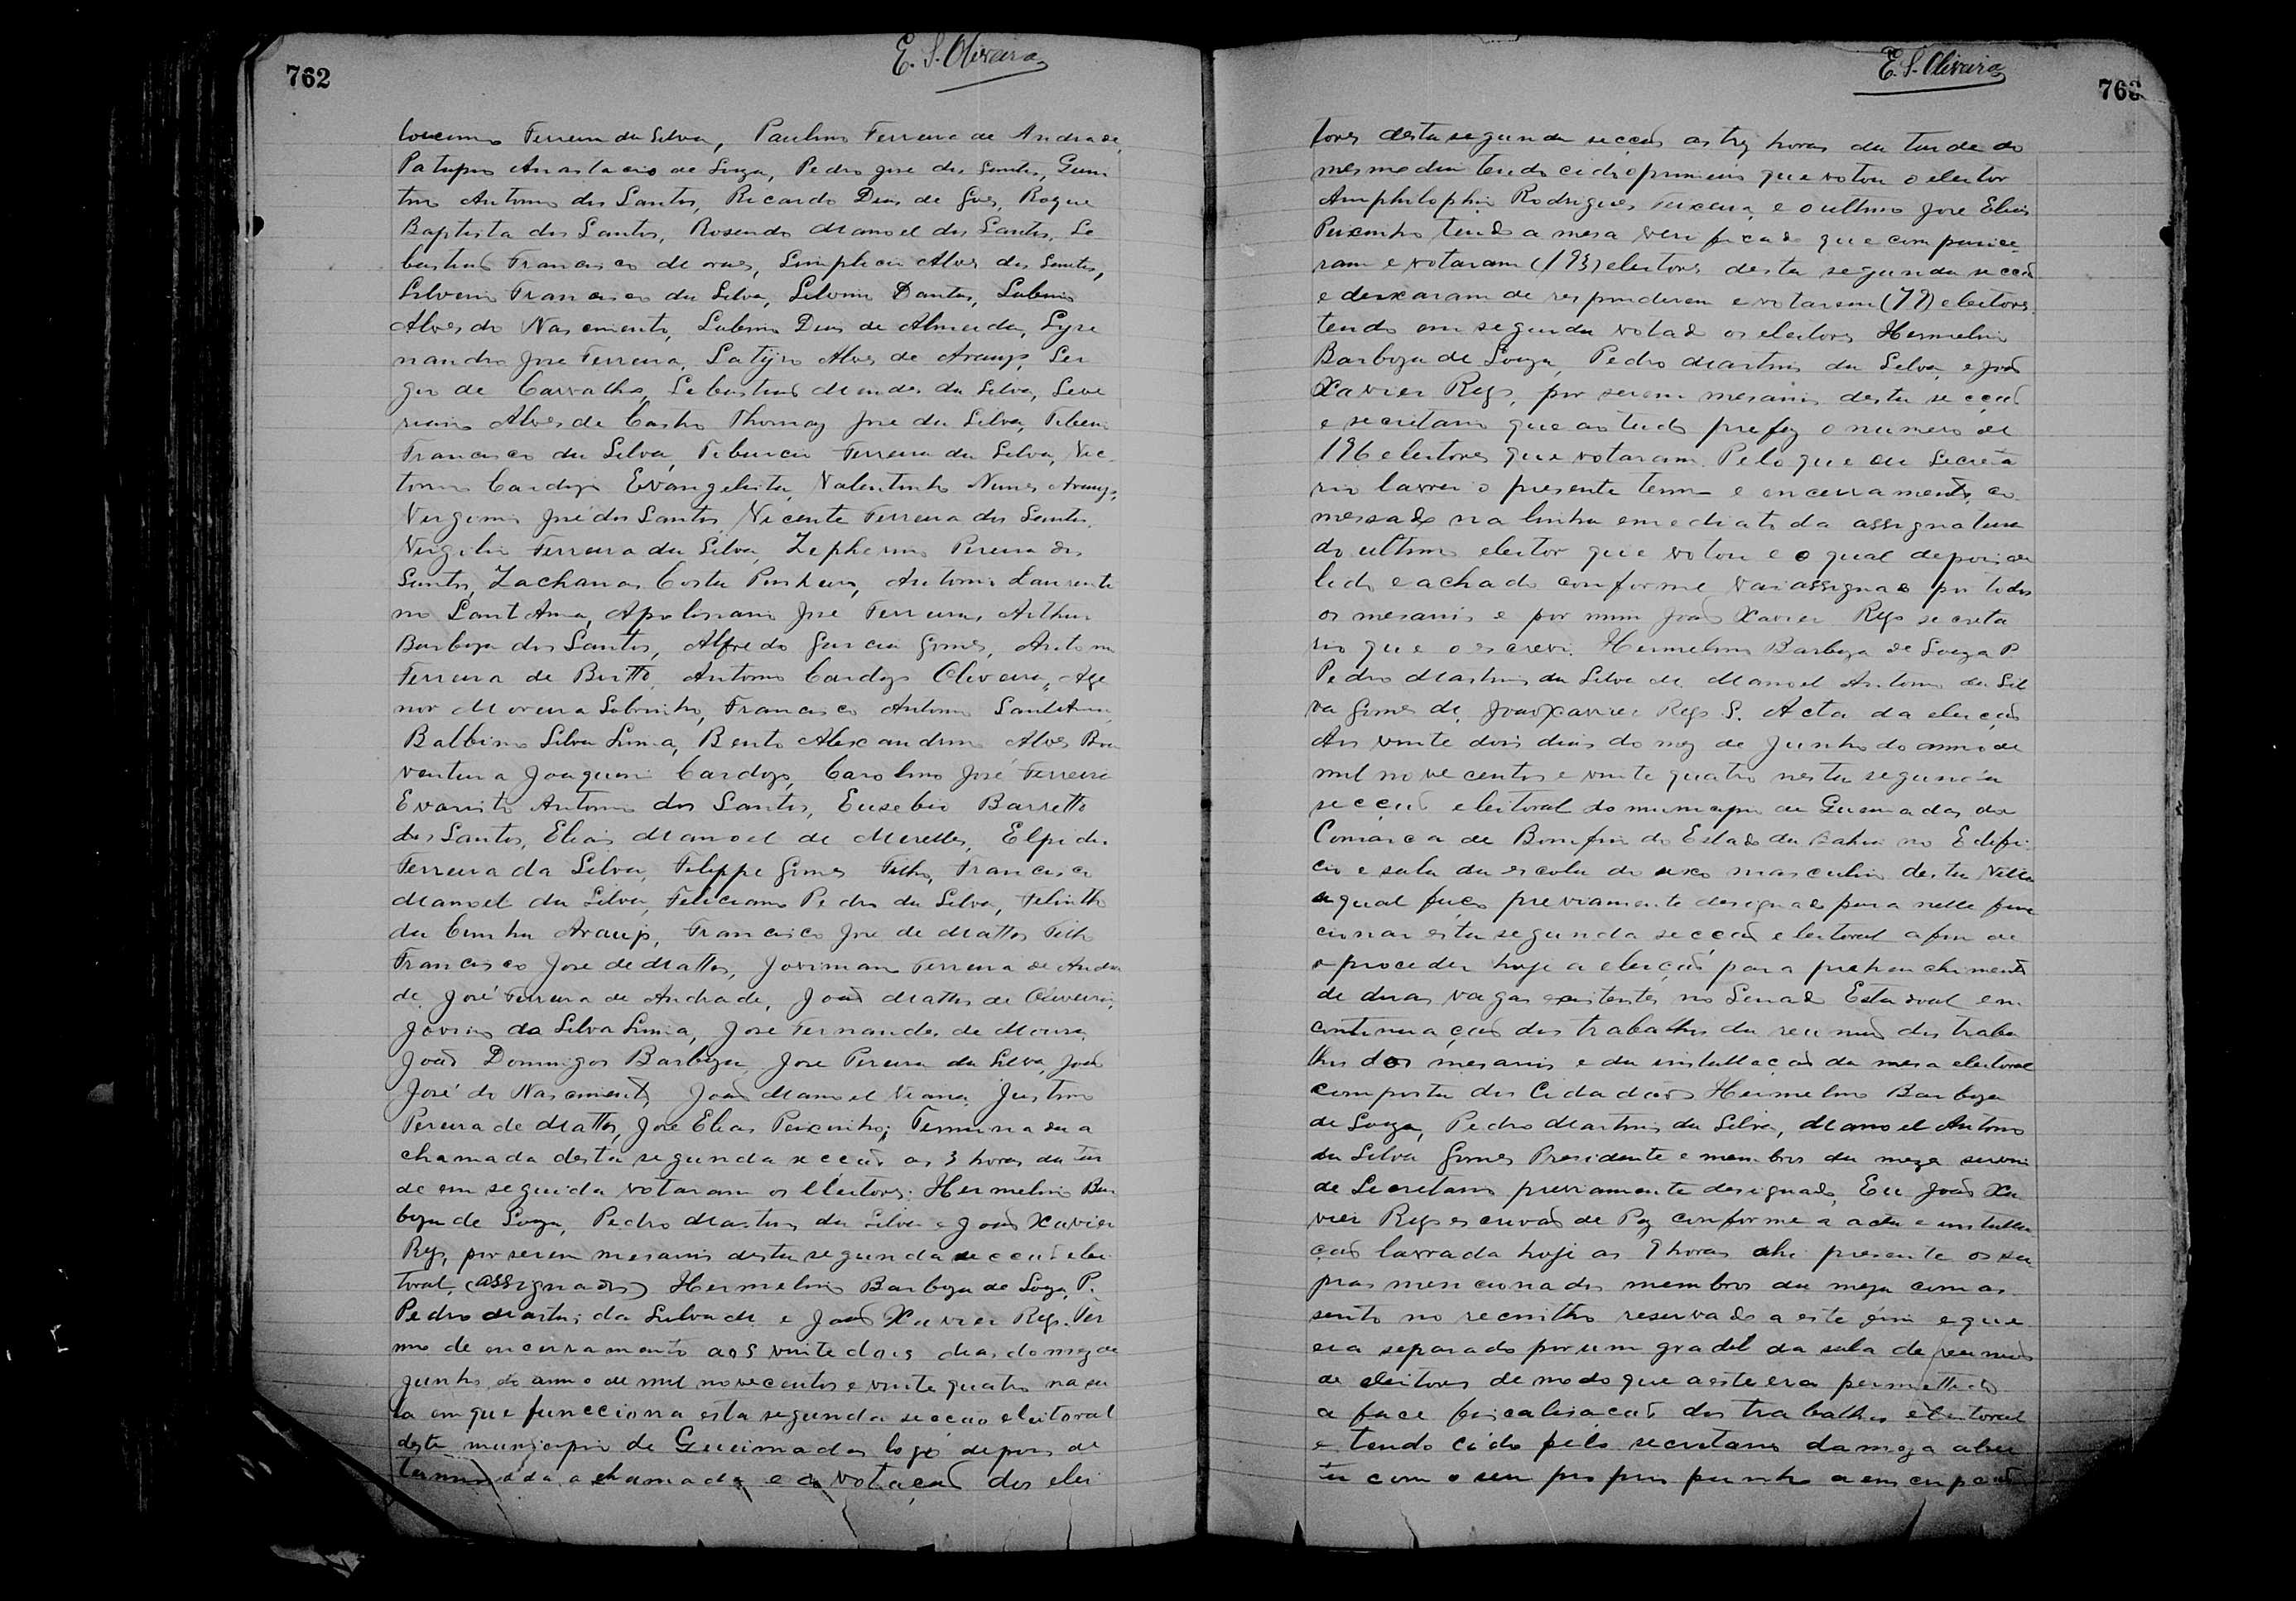 762
E. S. Oliveira
Ferreira da Silva, Paulino Ferreira de Andrade,
Anastacio de Souza, Pedro José dos Santos, Quin
tino Antonio dos Santos, Ricardo Dias de Goes, Roque
Baptista dos Santos, Rosendo Manoel dos Santos, Se
bastião Francisco de Moraes, Simplicio Alves dos Santos,
Silverio Francisco da Silva, Silvino Dantas, Sabino
Alves do Nascimento, Sabino Dias de Almeida, Syze
nandro José Ferreira, Satyro Alves de Araujo, Ser
gio de Carvalho, Sebastião Mendes da Silva, Seve
riano Alves de Castro Thomaz José da Silva, Tiberio
Francisco da Silva, Tiburcio Ferreira da Silva, Vic
torino Cardozo Evangelista, Valentinho Nunes Araujo,
Virginio José dos Santos, Vicente Ferreira dos Santos,
Virgilio Ferreira da Silva, Zepherino Pereira dos
Santos, Zacharias Costa Pinheiro, Antonio Laurenti
no Sant Anna, Apolinario José Ferreira, Arthur
Barboza dos Santos, Alfredo Garcia Gomes, Antonio
Ferreira de Britto, Antonio Cardozo Oliveira, Age
nor Moreira Sobrinho, Francisco Antonio SantAnna
Balbino Silva Lima, Bento Alexandrino Alves Boa
ventura Joaquim Cardozo, Carolino José Ferreira
Evaristo Antonio dos Santos, Eusebio Barretto
dos Santos, Elias Manoel de Meirelles, Elpidio
Ferreira da Silva, Filippe Gomes Filho, Francisco
Manoel da Silva, Feliciano Pedro da Silva, Filintho
da Cunha Araujo, Francisco José de Mattos Filho
Francisco José de Mattos, Joviniano Ferreira de Andra
de, José Ferreira de Andrade, João Mattos de Oliveira,
Jovino da Silva Lima, José Fernandes de Moura,
João Domingos Barboza, José Pereira da Silva, João
José do Nascimento, João Manoel Viana, Justino
Pereira de Mattos, José Elias Peixinho; Terminada a
chamada desta segunda secção as 3 horas da tar
de em seguida votaram os Eleitores: Hermelino Bar
boza de Souza, Pedro Martins da Silva e João Xavier
Reys, por serem mesarios desta segunda secção elei
toral, (assignados) Hermelino Barboza de Souza, P.
Pedro Martins da Silva M. e João Xavier Reys. Ter
mo de encerramento aos vinte dois dias do mez de
junho do anno de mil novecentos e vinte quatro na sa
la em que funcciona esta segunda secção eleitoral
deste municipio de Queimadas logo depois de
terminada a chamada e a votação dos elei
763
E. S. Oliveira
tores desta segunda secção as trez horas da tarde do
mesmo dia tendo cido o primeiro que votou o eleitor
Amphilophio Rodrigues Teixeira e o ultimo José Elias
Peixinho tendo a mesa verificado que comparece
ram e votaram (193) eleitores desta segunda secção
e deixaram de responderem e votarem (79) eleitores.
tendo em seguida votado os eleitores Hermelino
Barboza de Souza, Pedro Martins da Silva, e João
Xavier Reys, por serem mesarios desta secção
e secretario que ao tudo prefez o numero de
196 eleitores que votaram. Pelo que eu Secreta
rio lavrei o presente termo e encerramento, co
messado na linha emediata da assignatura
do ultimo eleitor que votou e o qual depois de
lido e achado conforme vai assignado por todos
os mesarios e por mim João Xavier Reys secreta
rio que o escrevi. Hermelino Barboza de Souza P.
Pedro Martins da Silva M. Manoel Antonio da Sil
va Gomes M. João Xavier Reys S. Acta da eleição
Aos vinte dois dias do mez de Junho do anno de
mil novecentos e vinte quatro nesta segunda
secção eleitoral do municipio de Queimadas da
Comarca de Bomfim do Estado da Bahia no Edifi
cio e sala da escola do sexo masculino desta Villa
previamente designado para nelle func
cionar esta segunda secção eleitoral afim de
proceder hoje a eleição para prehenchimento
de duas vagas existentes no Senado Estadoal em
continuação dos trabalhos da reunião dos traba
lhos dos mesarios e da installação da mesa eleitoral
composta dos Cidadãos Hermelino Barboza
de Souza, Pedro Martins da Silva, Manoel Antonio
da Silva Gomes Presidente e membros da meza
de Secretario previamente designado, Eu João Xa
vier Reys escrivão de Paz conforme a acta e installa
ção lavrada hoje as 9 horas ahi presente os su
pras mencionados membros da meza com as
sento no recintho reservado a este fim e que
era separado por um gradil da sala de reunião
de eleitores de modo que a estes era permettido
a face fiscalisação dos trabalhos eleitoral
e tendo cido pelo secretario da meza aber
ta com o seu proprio punho